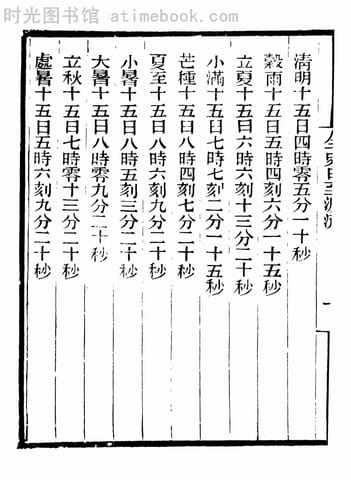 时光图书馆 atimebook.com
清明十五日四時零五分一十秒
穀雨十五日五時四刻六分一十五秒
立夏十五日六時六刻十三分二十秒
小滿十五日七時七刻二分一十五秒
芒種十五日八時四刻七分二十秒
夏至十五日八時六刻九分二十秒
小暑十五日八時五刻三分二十秒
大暑十五日八時零九分二十秒
立秋十五日七時零十三分二十秒
處暑十五日五時六刻九分二十秒